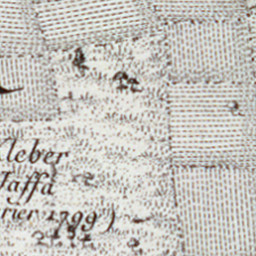 Kleber
Jaffa
rier 1799)